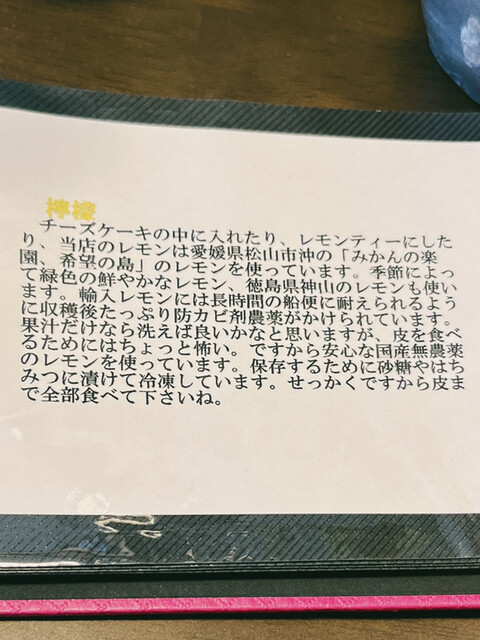 檸檬
チーズケーキの中に入れたり、レモンティーにした
り、当店のレモンは愛媛県松山市沖の「みかんの楽
園、希望の島」のレモンを使っています。季節によっ
て緑色の鮮やかなレモン、徳島県神山のレモンも使い
ます。輸入レモンには長時間の船便に耐えられるよう
に収穫後たっぷり防カビ剤農薬がかけられています。
果汁だけなら洗えば良いかなと思いますが、皮を食べ
るためにはちょっと怖い。ですから安心な国産無農薬
のレモンを使っています。保存するために砂糖やはち
みつに漬けて冷凍しています。せっかくですから皮ま
で全部食べて下さいね。